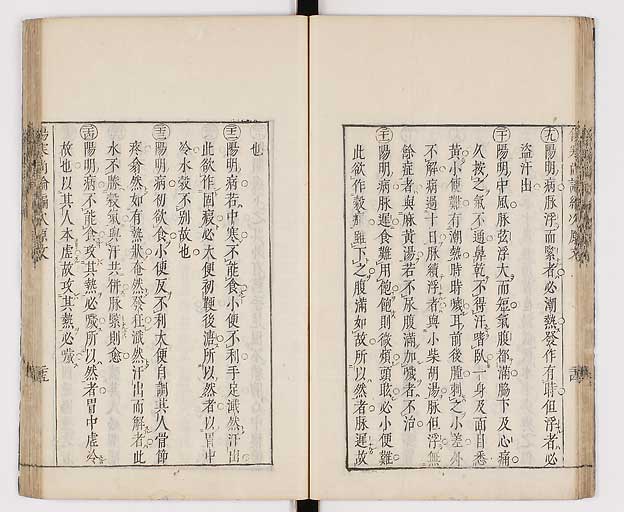 十九陽明病脉浮而緊者必潮熱發作有時但浮者必
盜汗出
二十陽明中風脉弦浮大而短氣腹都滿脇下及心痛
久按之氣不通鼻乾不得汗嗜臥一身及面目悉
黃小便難有潮熱時時噦耳前後腫刺之小差外
不解病過十日脉續浮者與小柴胡湯脉但浮無
餘症者與麻黃湯若不尿腹滿加噦者不治
陽明病脉遲食難用飽飽則微煩頭眩必小便難
此欲作穀疸雖下之腹滿如故所以然者脉遲故
也
陽明病若中寒不能食小便不利手足濈然汗出
此欲作固瘕必大便初鞕後溏所以然者以胃中
冷水穀不別故也
陽明病初欲食小便反不利大便自調其人骨節
疼翕然如有熱狀奄然發狂濈然汗出而解者此
水不勝穀氣與汗共併脉緊則愈
陽明病不能食攻其熱必噦所以然者胃中虛冷
故也以其人本虛故攻其熱必噦